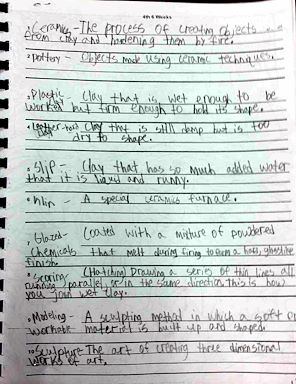 4th 6 Weeks
• Ceramics - The process of creating objects
from clay and hardening them by fire.
• pottery - Objects made using ceramic techniques.
• Plastic - Clay that is wet enough to be
worked but firm enough to hold its shape.
• Leather-hard Clay that is still damp but is too
dry to shape.
• Slip - Clay that has so much added water
that it is liquid and runny.
• Kiln - A special ceramics furnace.
• Glazed - Coated with a mixture of powdered
chemicals that melt during firing to form a hard, glasslike
finish.
• Scoring (Hatching) Drawing a series of thin lines all
running parallel, or in the same direction. This is how
you join wet clay.
• Modeling - A sculpting method in which a soft or
workable material is built up and shaped.
• Sculpture The art of creating three dimensional
works of art.